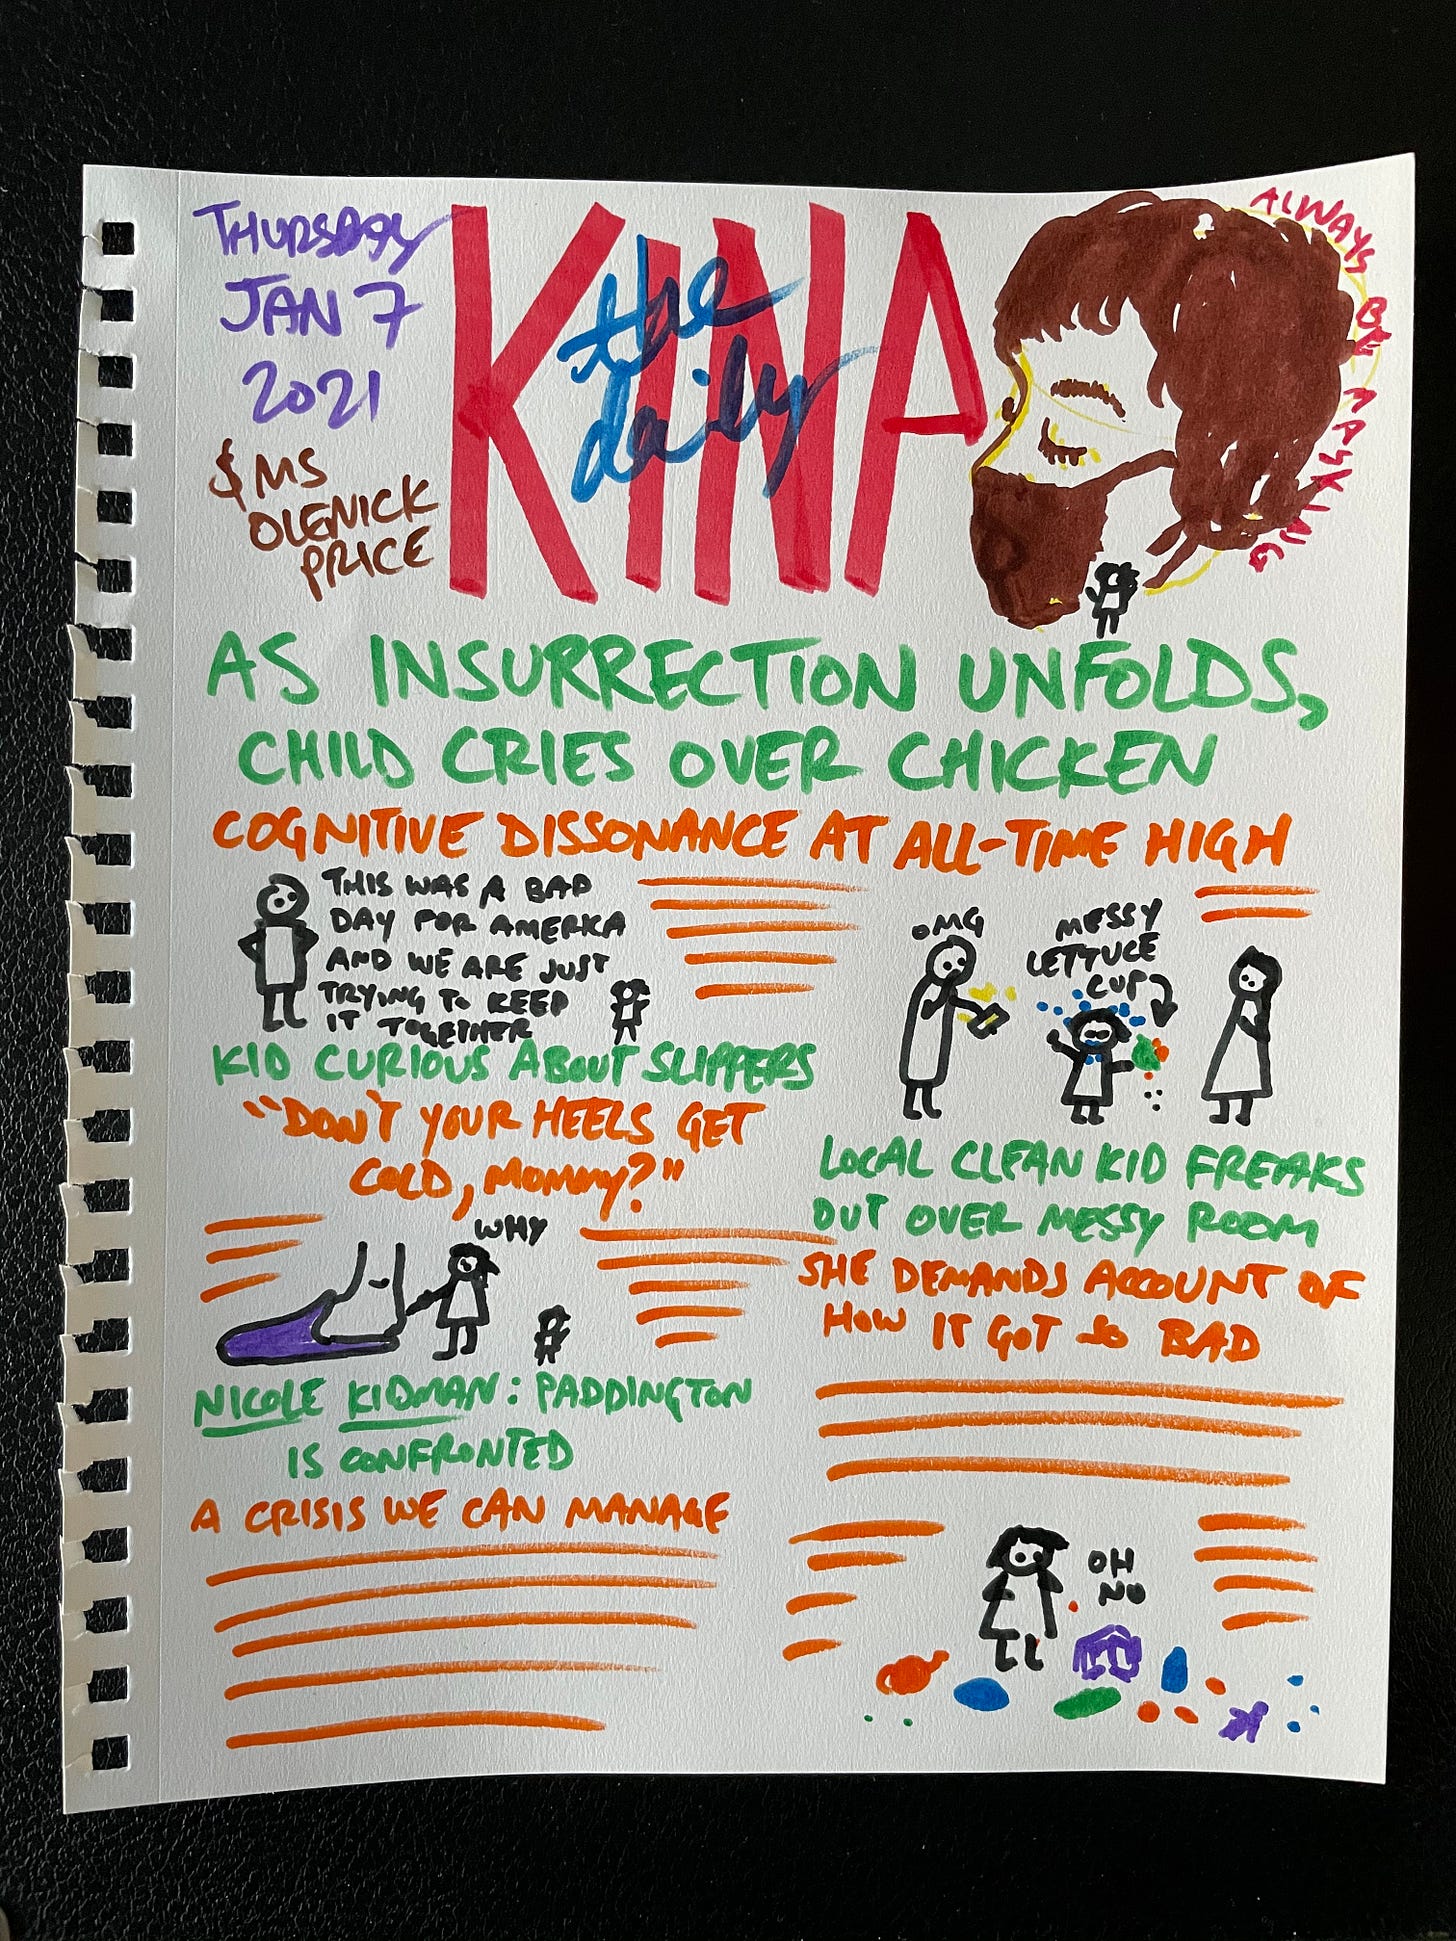 THURSDAY
JAN 7
2021
& MS
OLENICK
PRICE
the
daily
KINA
ALWAYS BY AASKING
AS INSURRECTION UNFOLDS,
CHILD CRIES OVER CHICKEN
COGNITIVE DISSONANCE AT ALL-TIME HIGH
THIS WAS A BAD
DAY FOR AMERKA
AND WE ARE JUST
TRYING TO KEEP
IT TOGETHER
OMG
MESSY
LETTUCE
CUP
KID CURIOUS ABOUT SLIPPERS
"DON'T YOUR HEELS GET
COLD, MOMMY?"
WHY
NICOLE KIDMAN: PADDINGTON
IS CONFRONTED
A CRISIS WE CAN MANAGE
LOCAL CLEAN KID FREAKS
OUT OVER MESSY ROOM
SHE DEMANDS ACCOUNT OF
HOW IT GOT SO BAD
OH
NO